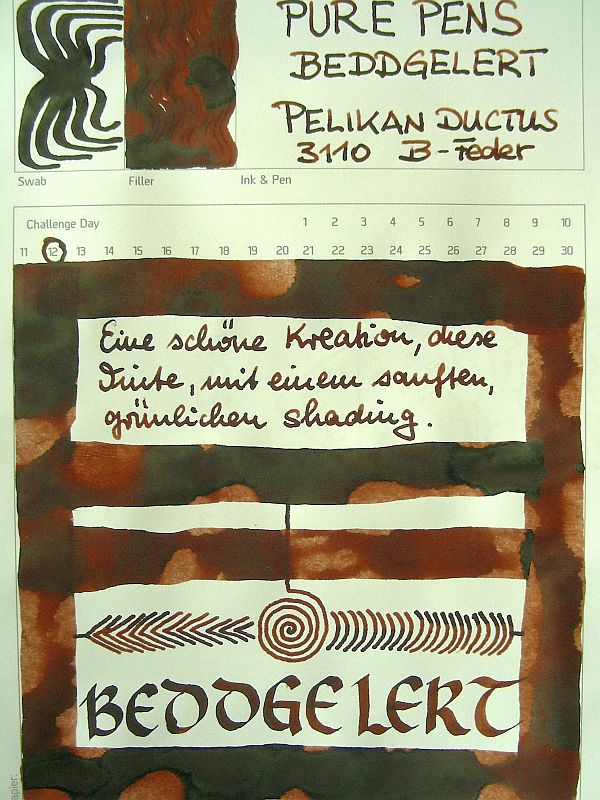 PURE PENS
BEDDGELERT
PELIKAN DUCTUS
3110 B-Feder
Swab Filler Ink & Pen
Challenge Day 1 2 3 4 5 6 7 8 9 10
11 12 13 14 15 16 17 18 19 20 21 22 23 24 25 26 27 28 29 30
Eine schöne Kreation, diese
Tinte, mit einem sanften,
grünlichen shading.
BEDDGELERT